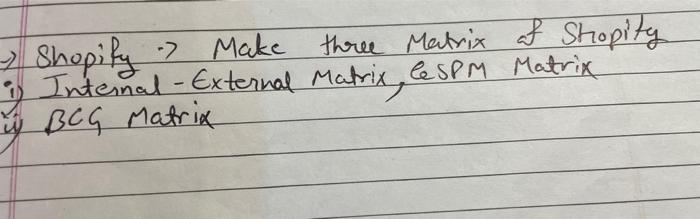 → Shopify → Make three Matrix of Shopify
i) Internal - External Matrix, QSPM Matrix
ii) BCG Matrix